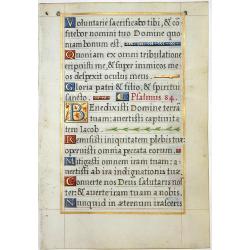 Voluntarie sacrificabo tibi, & con
fitebor nomini tuo Domine quo
niam bonum est.
Quoniam ex omni tribulatione
eripuisti me, & super inimicos me
os despexit oculus meus.
Gloria patri & filio, & spiritui
sancto. Psalmus 84.
Benedixisti Domine terrã
tuam: avertisti captivita
tem Iacob.
Remisisti iniquitatem plebis tuæ:
operuisti omnia peccata eorum.
Mitigasti omnem iram tuam: a
vertisti ab ira indignationis tuæ.
Converte nos Deus salutaris no
ster: & averte iram tuam a nobis.
Nunquid in æternum irasceris